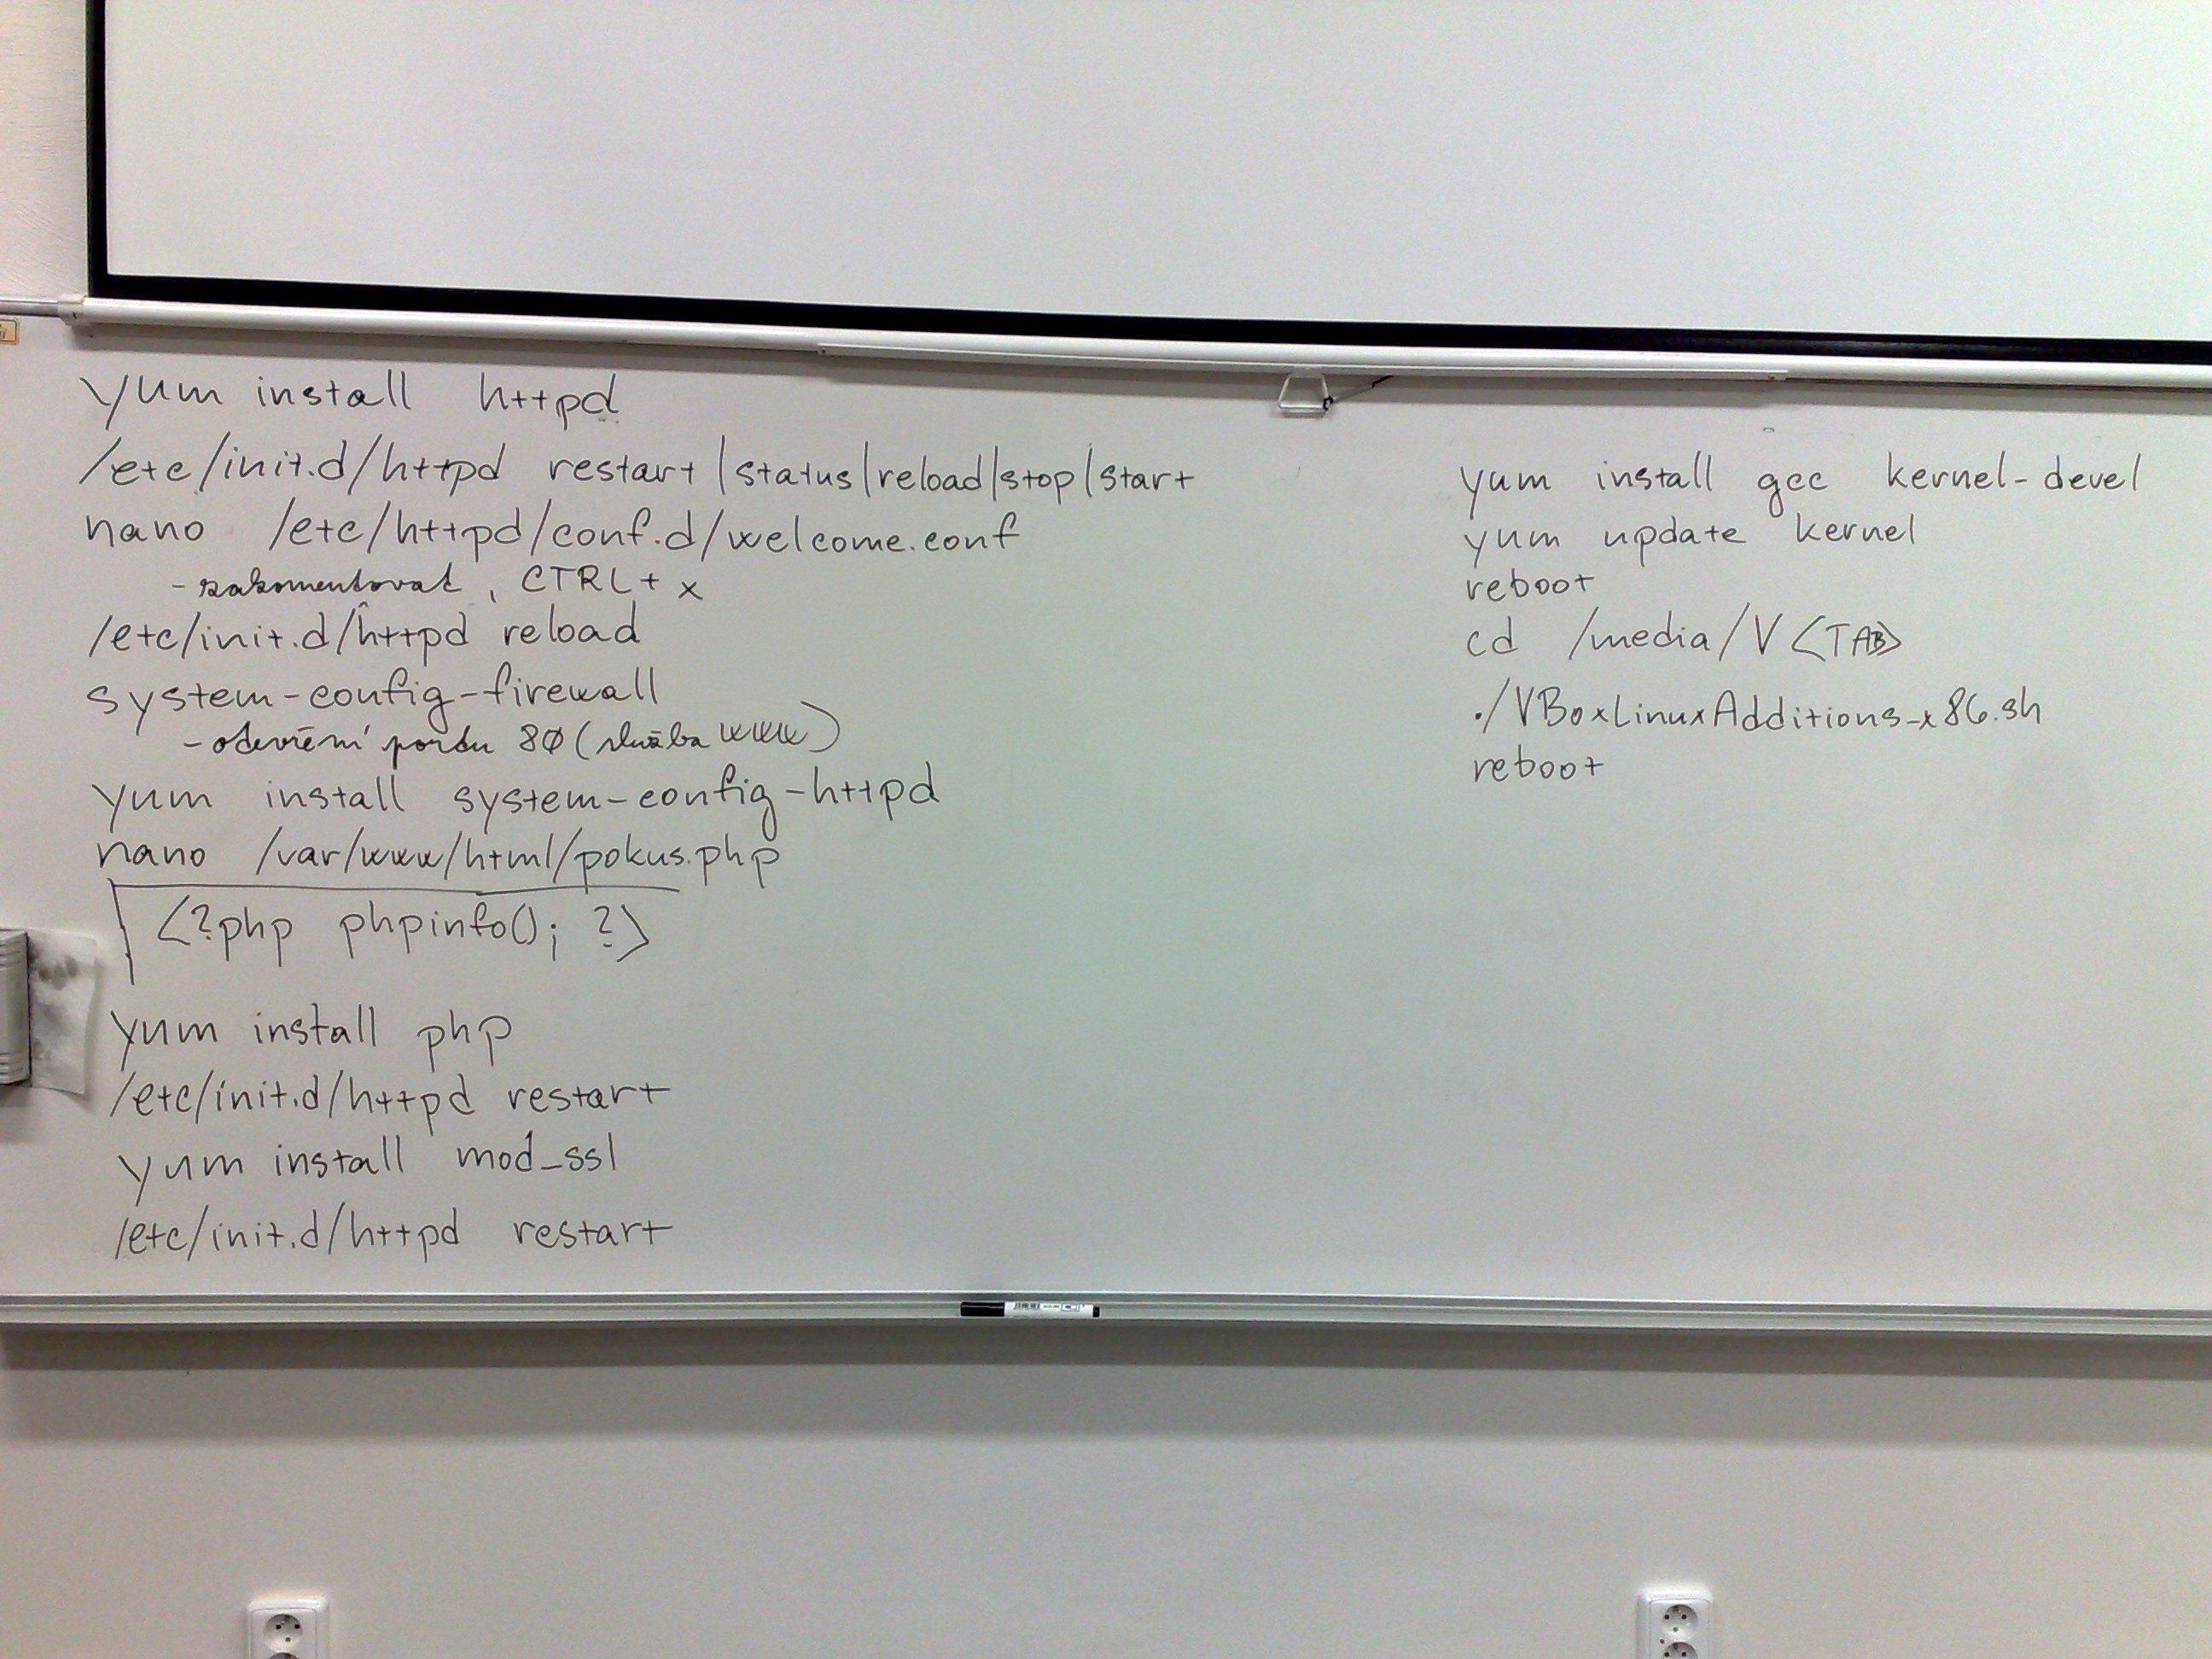 yum install httpd
/etc/init.d/httpd restart|status|reload|stop|start
nano /etc/httpd/conf.d/welcome.conf
- zakomentovat, CTRL+x
/etc/init.d/httpd reload
system-config-firewall
- otevření portu 80 (služba www)
yum install system-config-httpd
nano /var/www/html/pokus.php
<?php phpinfo(); ?>
yum install php
/etc/init.d/httpd restart
yum install mod_ssl
/etc/init.d/httpd restart
yum install gcc kernel-devel
yum update kernel
reboot
cd /media/V<TAB>
./VBoxLinuxAdditions-x86.sh
reboot